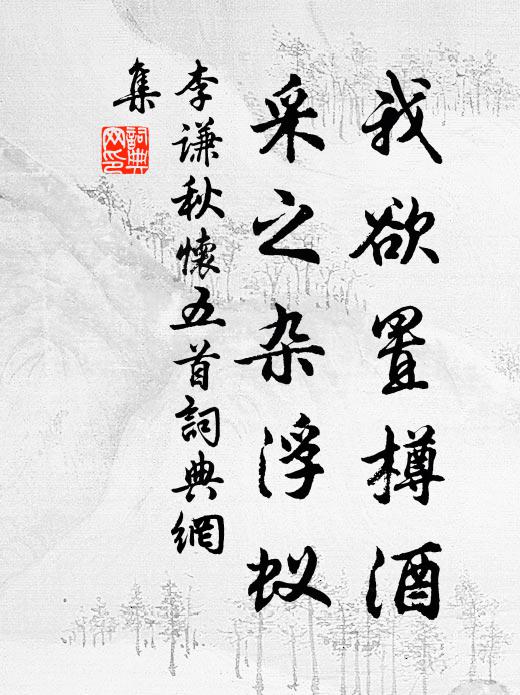 我欲置樽酒
采之杂浮蚁
李谦秋懷五首詞典網
集
詞典
网印